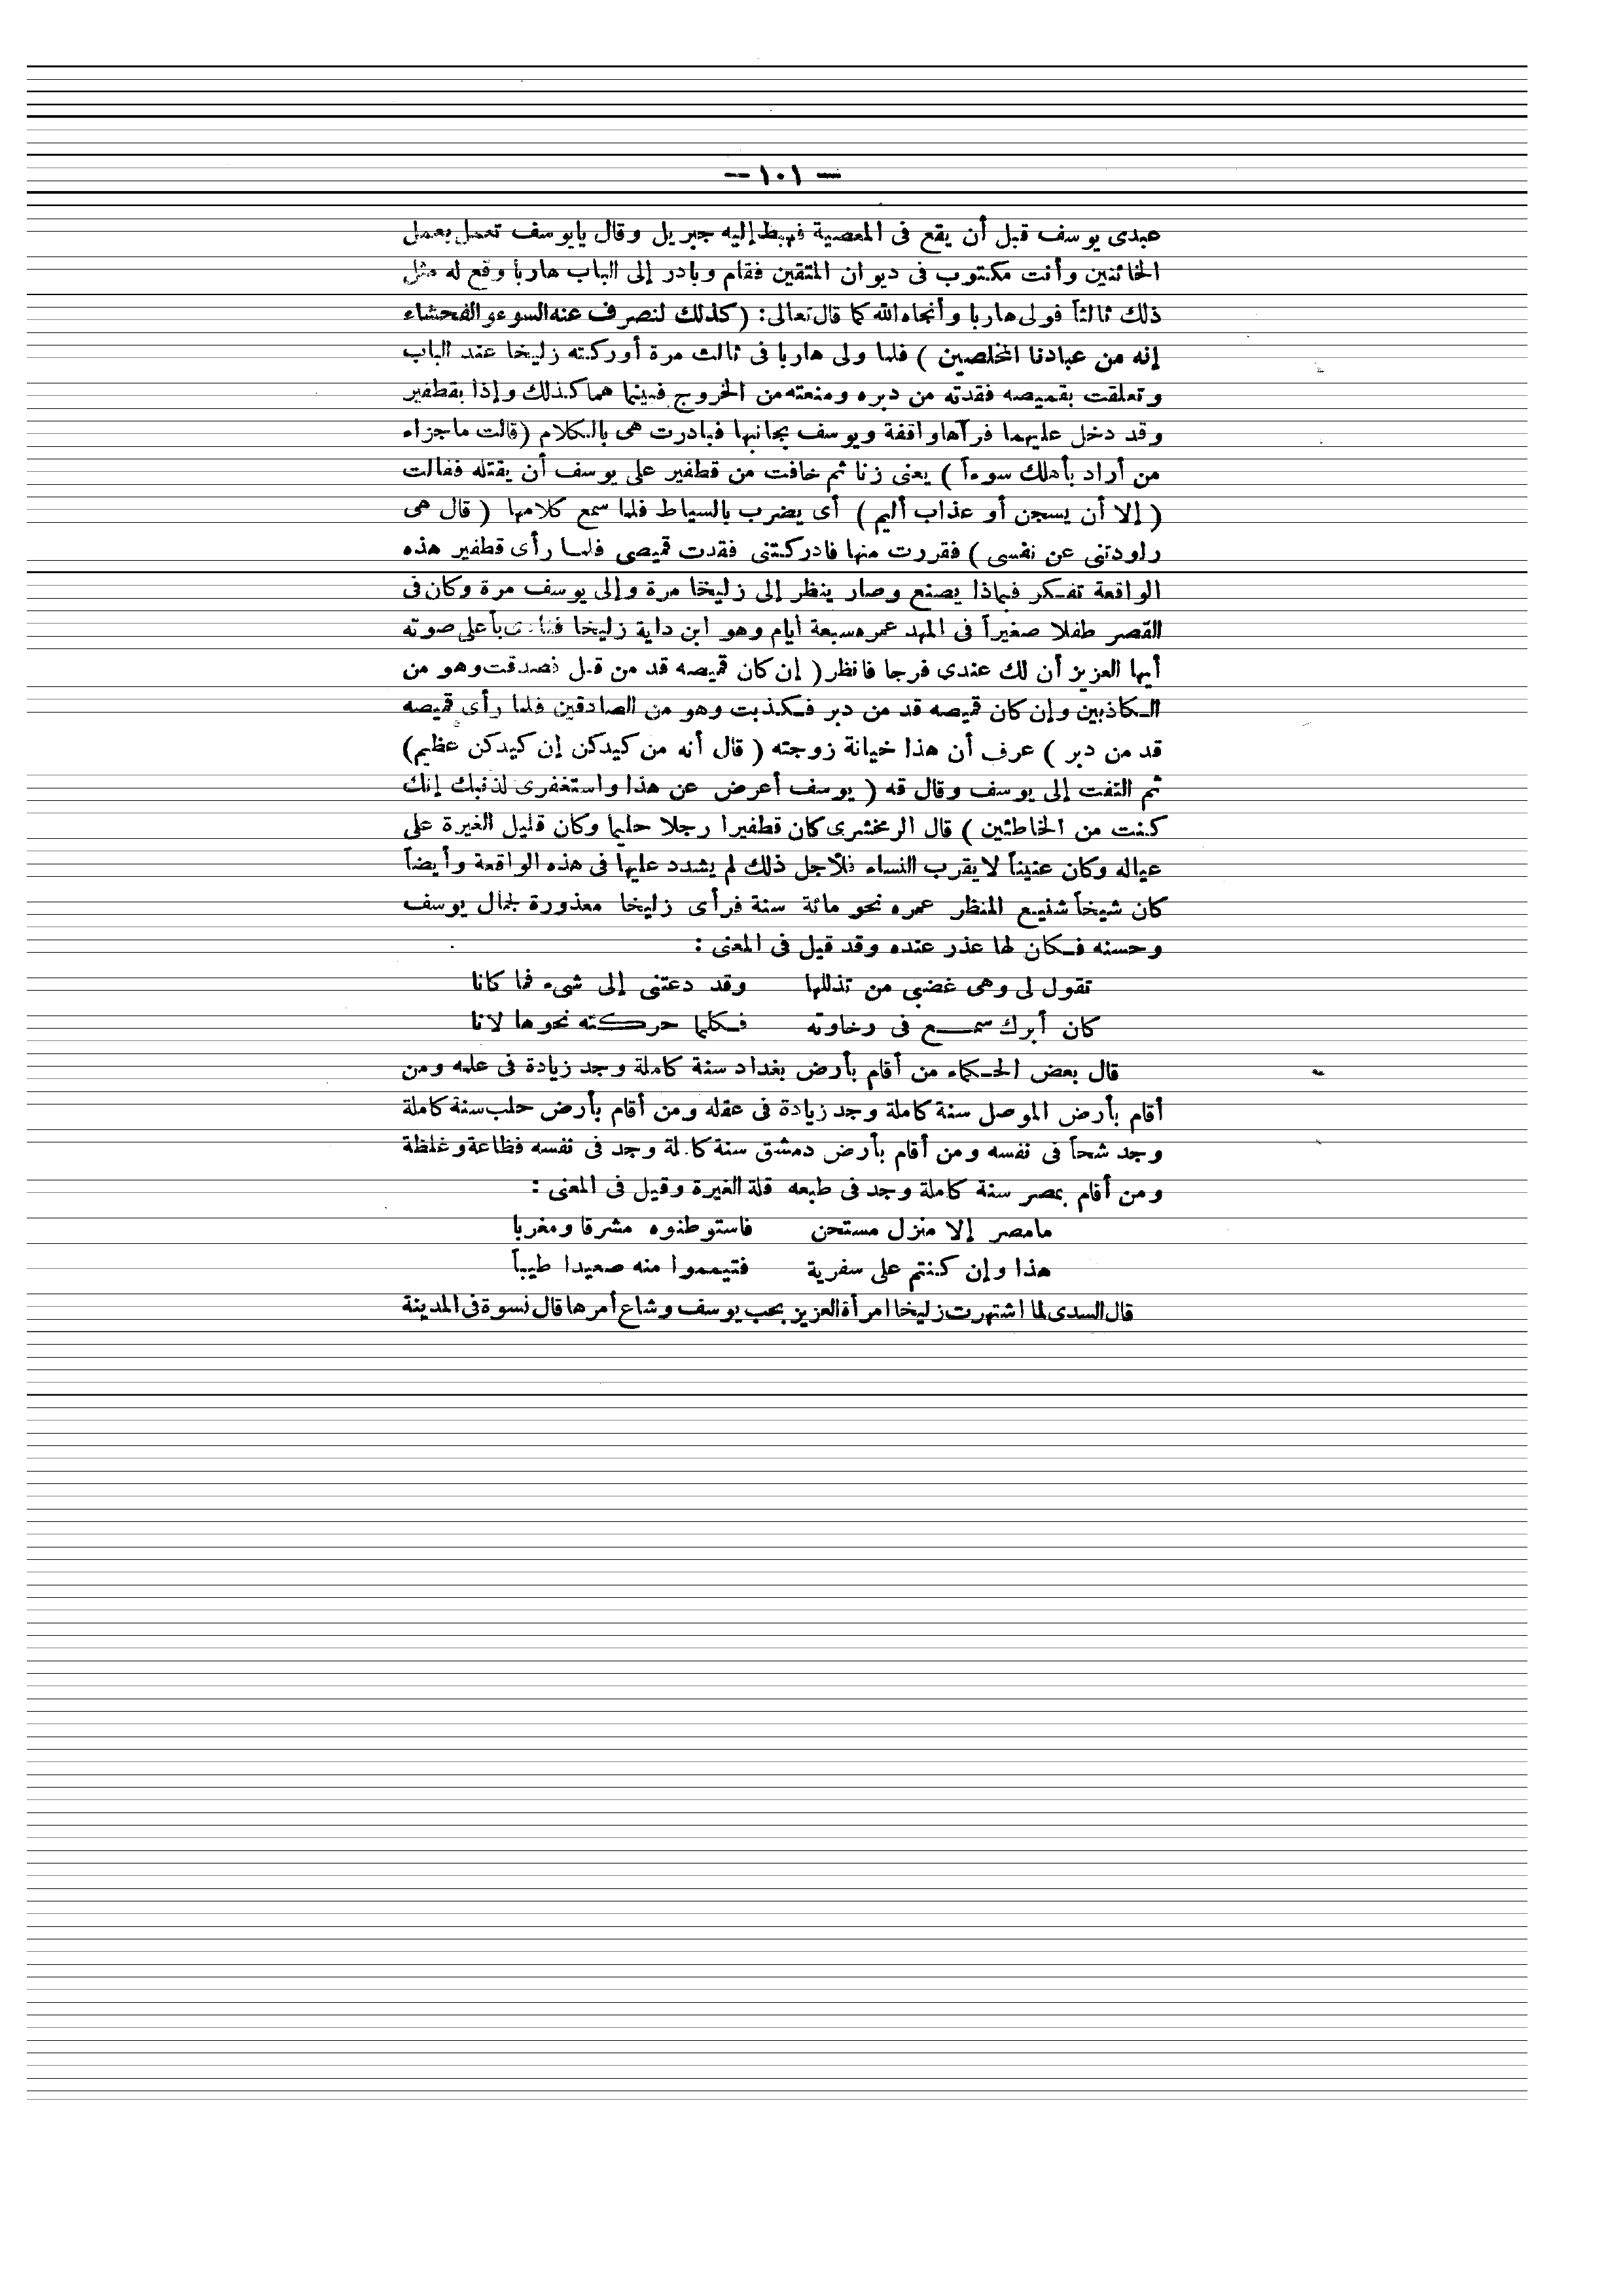 — ١٠١ —
عبدى يوسف قبل أن يقع فى المعصية فهبط إليه جبريل وقال يايوسف تعمل بعمل
الخائنين وأنت مكتوب فى ديوان المتقين فقام وبادر إلى الباب هاربا وقع له مثل
ذلك ثالثاً فولى هاربا وأنجاه الله كما قال تعالى: (كذلك لنصرف عنه السوء والفحشاء
إنه من عبادنا المخلصين ) فلما ولى هاربا فى ثالث مرة أوركته زليخا عند الباب
وتعلقت بقميصه فقدته من دبره ومنعته من الخروج فبينما هما كذلك وإذا بقطفير
وقد دخل عليهما فرآها واقفة ويوسف بجانبها فبادرت هى بالكلام (قالت ماجزاء
من أراد بأهلك سوءاً ) يعنى زنا ثم خافت من قطفير على يوسف أن يقتله فقالت
( إلا أن يسجن أو عذاب أليم ) أى يضرب بالسياط فلما سمع كلامها ( قال هى
راودتنى عن نفسى ) فقررت منها فادركتنى فقدت قميصى فلما رأى قطفير هذه
الواقعة تفكر فيماذا يصنع وصار ينظر إلى زليخا مرة وإلى يوسف مرة وكان فى
القصر طفلا صغيراً فى المهد عمره سبعة أيام وهو ابن داية زليخا فنادى بأعلى صوته
أيها العزيز أن لك عندى فرجا فانظر ( إن كان قميصه قد من قبل فصدقت وهو من
الكاذبين وإن كان قميصه قد من دبر فكذبت وهو من الصادقين فلما رأى قميصه
قد من دبر ) عرف أن هذا خيانة زوجته ( قال أنه من كيدكن إن كيدكن عظيم)
ثم التفت إلى يوسف وقال قه ( يوسف أعرض عن هذا واستغفرى لذنبك إنك
كنت من الخاطئين ) قال الزمخشرى كان قطفيرا رجلا حليما وكان قليل الغيرة على
عياله وكان عنيناً لا يقرب النساء فلأجل ذلك لم يشدد عليها فى هذه الواقعة وأيضاً
كان شيخاً شنيع المنظر عمره نحو مائة سنة فرأى زليخا معذورة لجمال يوسف
وحسنه فكان لها عذر عنده وقد قيل فى المعنى :
تقول لى وهى غضبى من تذللها وقد دعتنى إلى شىء فما كانا
كان أيرك سمع فى رخاوته فكلما حركته نحوها لانا
قال بعض الحكماء من أقام بأرض بغداد سنة كاملة وجد زيادة فى علمه ومن
أقام بأرض الموصل سنة كاملة وجد زيادة فى عقله ومن أقام بأرض حلب سنة كاملة
وجد شحاً فى نفسه ومن أقام بأرض دمشق سنة كاملة وجد فى نفسه فظاعة وغلظة
ومن أقام بمصر سنة كاملة وجد فى طبعه قلة الغيرة وقيل فى المعنى :
مامصر إلا منزل مستحن فاستوطنوه مشرقا ومغربا
هذا وإن كنتم على سفرية فتيمموا منه صعيدا طيباً
قال السدى لما اشتهرت زليخا امرأة العزيز بحب يوسف وشاع أمرها قال نسوة فى المدينة